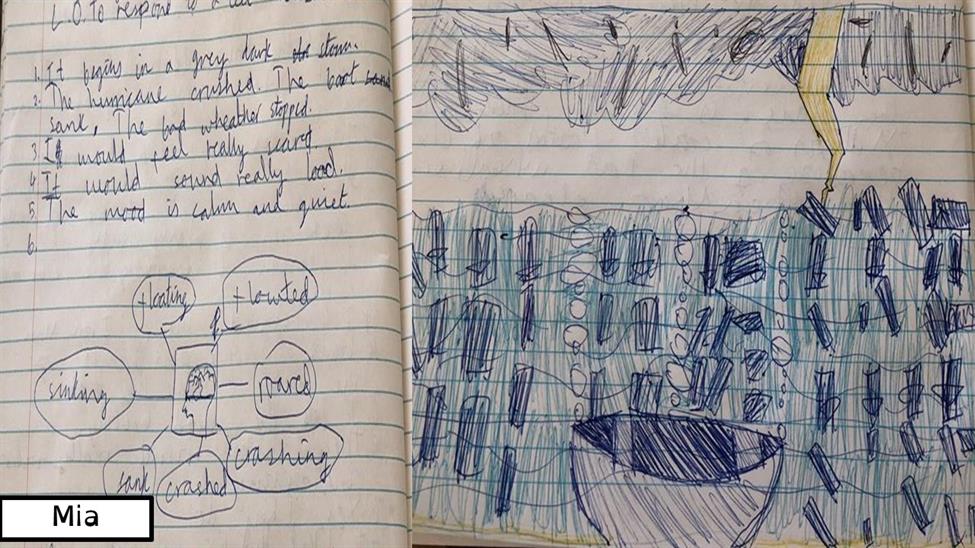 L.O. To respond to a
1. It begins in a grey dark storm.
2. The hurricane crushed. The boat
sank, The bad wheather stopped.
3 I would feel really scard
4 It would sound really loud.
5 The mood is calm and quiet.
6.
floating
sinking
roared
crashing
sank
crashed
Mia